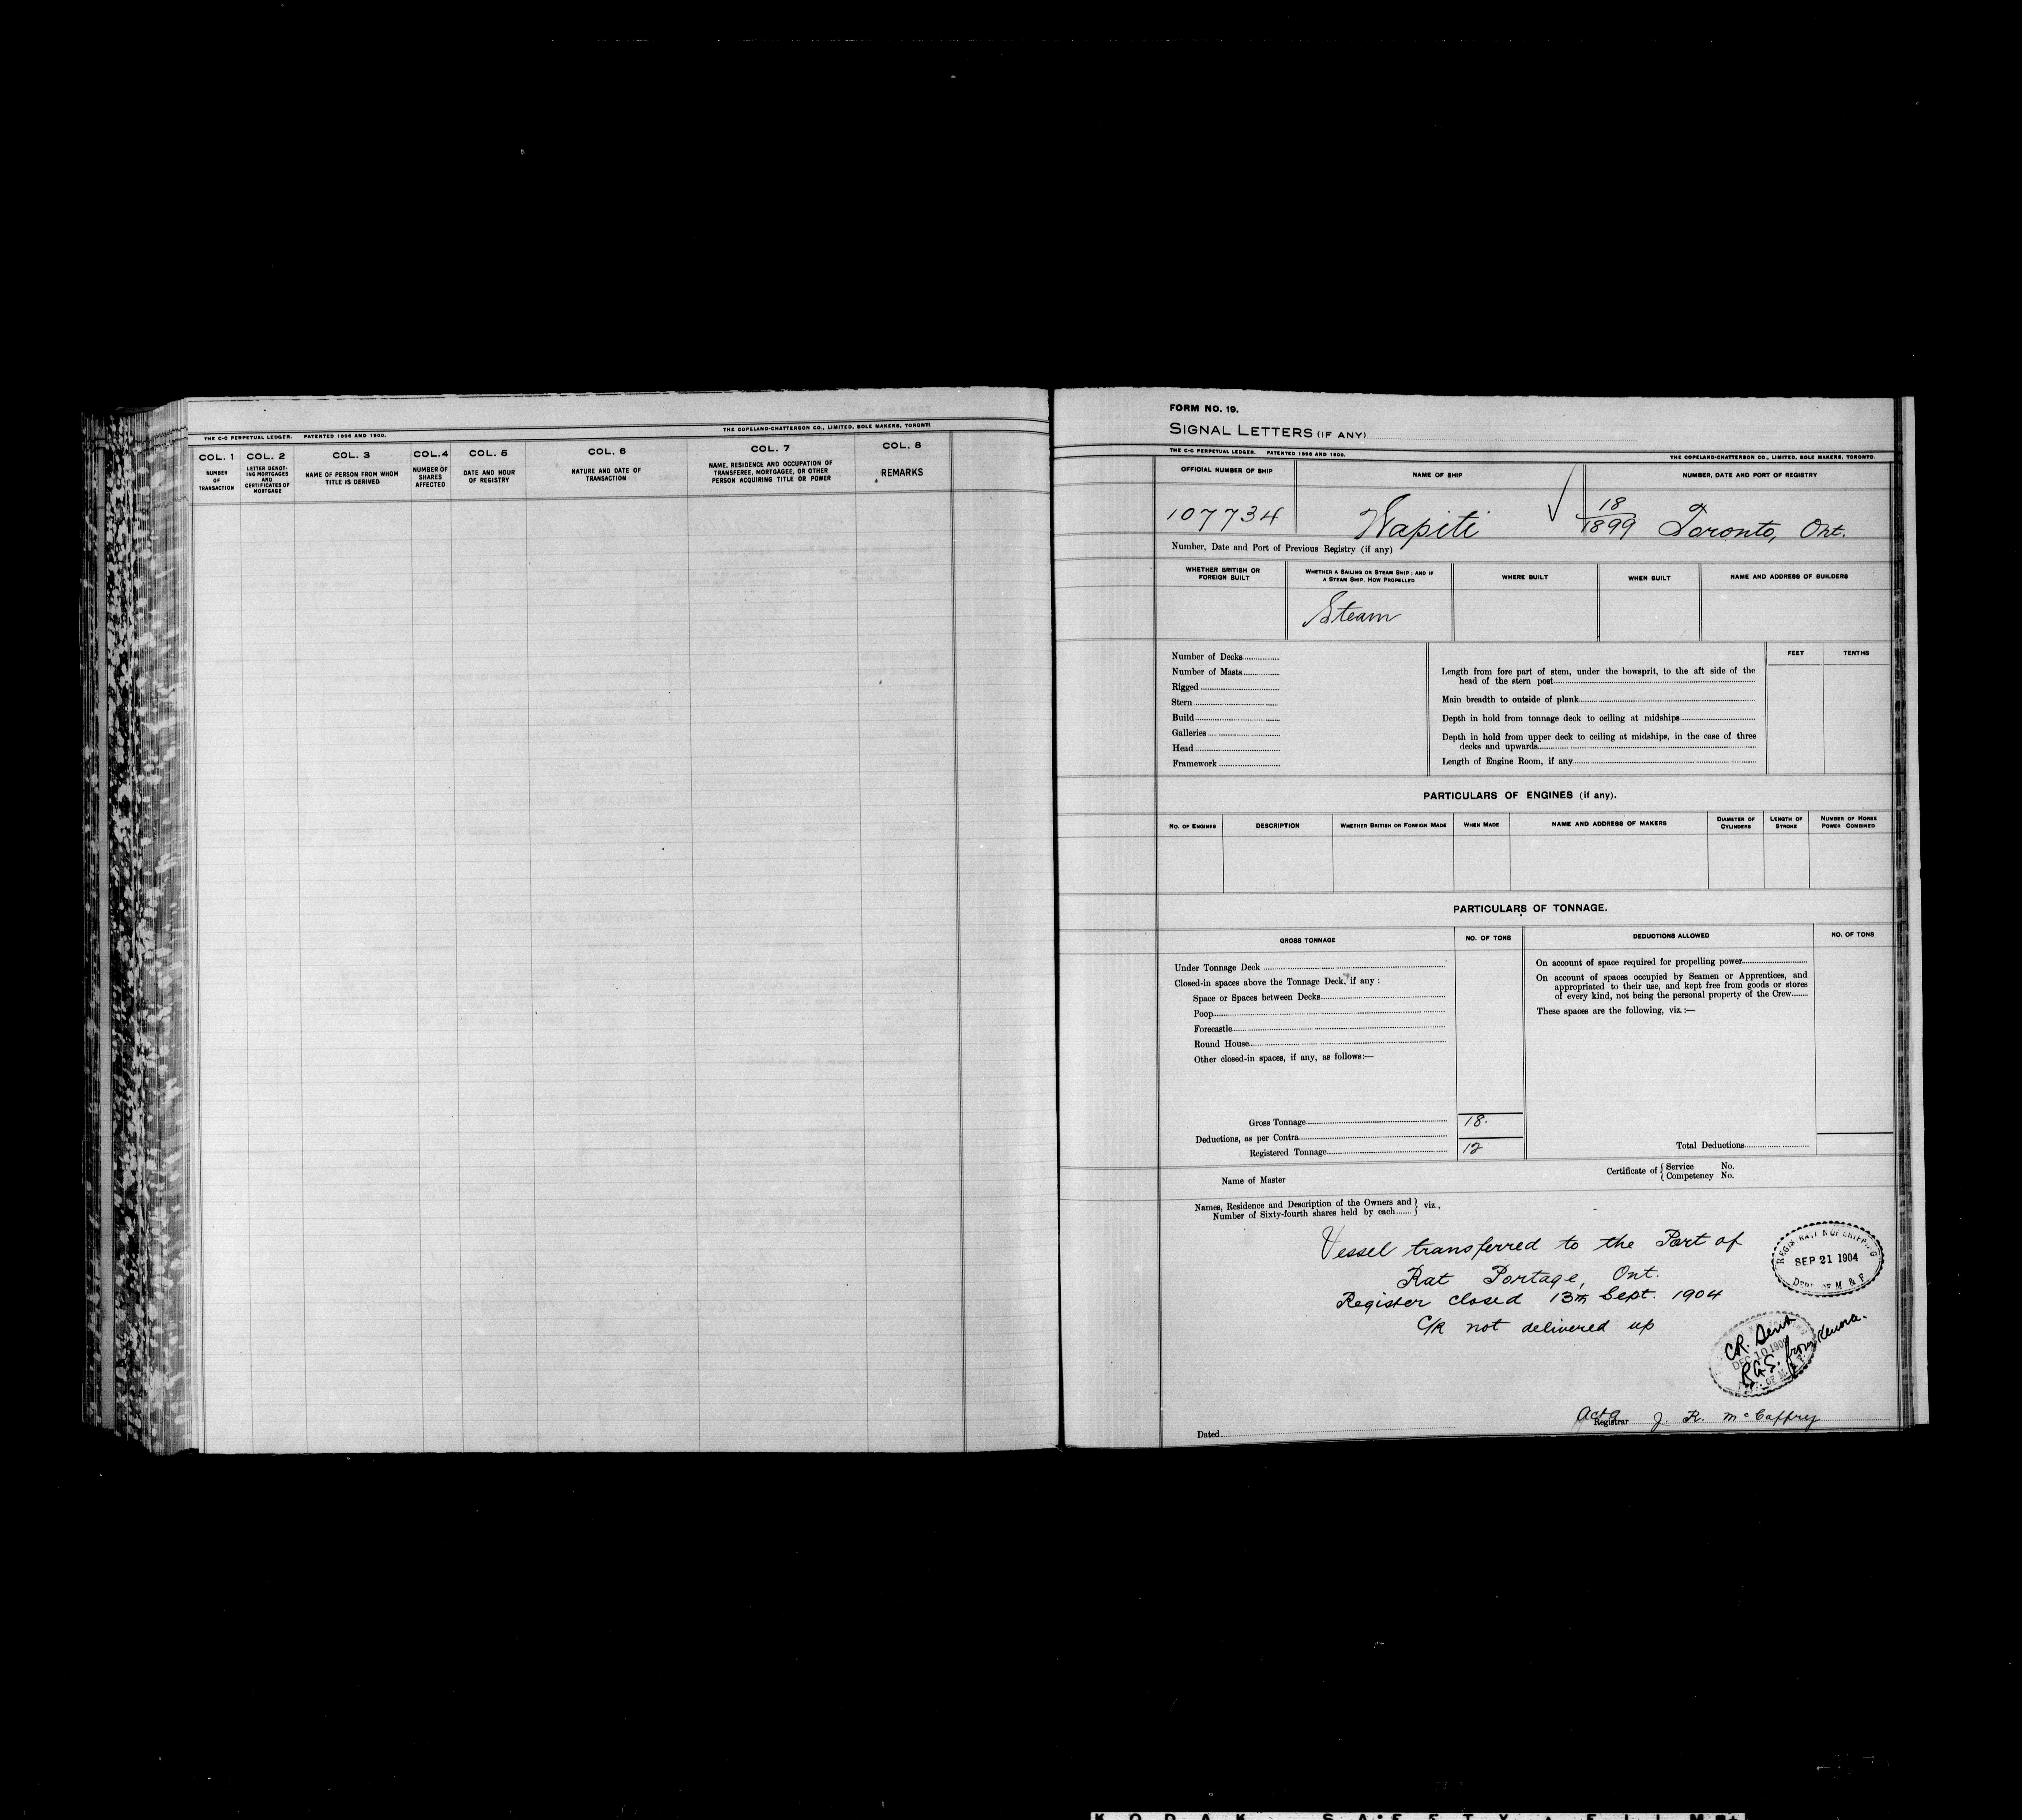 THE C-C PERPETUAL LEDGER. PATENTED 1896 AND 1900.
THE COPELAND-CHATTERSON CO., LIMITED, SOLE MAKERS, TORONTO
COL. 1 COL. 2 COL. 3 COL. 4 COL. 5 COL. 6 COL. 7 COL. 8
NUMBER OF TRANSACTION
LETTER DENOTING MORTGAGES AND CERTIFICATES OF MORTGAGE
NAME OF PERSON FROM WHOM TITLE IS DERIVED
NUMBER OF SHARES AFFECTED
DATE AND HOUR OF REGISTRY
NATURE AND DATE OF TRANSACTION
NAME, RESIDENCE AND OCCUPATION OF TRANSFEREE, MORTGAGEE, OR OTHER PERSON ACQUIRING TITLE OR POWER
REMARKS
FORM NO. 19.
SIGNAL LETTERS (IF ANY)
THE C-C PERPETUAL LEDGER. PATENTED 1896 AND 1900.
THE COPELAND-CHATTERSON CO., LIMITED, SOLE MAKERS, TORONTO.
OFFICIAL NUMBER OF SHIP
NAME OF SHIP
NUMBER, DATE AND PORT OF REGISTRY
107734
Wapiti
18/1899 Toronto, Ont.
Number, Date and Port of Previous Registry (if any)
WHETHER BRITISH OR FOREIGN BUILT
WHETHER A SAILING OR STEAM SHIP; AND IF A STEAM SHIP, HOW PROPELLED
WHERE BUILT
WHEN BUILT
NAME AND ADDRESS OF BUILDERS
Steam
Number of Decks
Number of Masts
Rigged
Stern
Build
Galleries
Head
Framework
FEET TENTHS
Length from fore part of stem, under the bowsprit, to the aft side of the
head of the stern post
Main breadth to outside of plank
Depth in hold from tonnage deck to ceiling at midships
Depth in hold from upper deck to ceiling at midships, in the case of three
decks and upwards
Length of Engine Room, if any
PARTICULARS OF ENGINES (if any).
NO. OF ENGINES
DESCRIPTION
WHETHER BRITISH OR FOREIGN MADE
WHEN MADE
NAME AND ADDRESS OF MAKERS
DIAMETER OF CYLINDERS
LENGTH OF STROKE
NUMBER OF HORSE POWER COMBINED
PARTICULARS OF TONNAGE.
GROSS TONNAGE
NO. OF TONS
DEDUCTIONS ALLOWED
NO. OF TONS
Under Tonnage Deck
Closed-in spaces above the Tonnage Deck, if any :
Space or Spaces between Decks
Poop
Forecastle
Round House
Other closed-in spaces, if any, as follows:—
On account of space required for propelling power
On account of spaces occupied by Seamen or Apprentices, and
appropriated to their use, and kept free from goods or stores
of every kind, not being the personal property of the Crew
These spaces are the following, viz.:—
Gross Tonnage 18.
Deductions, as per Contra
Registered Tonnage 12
Total Deductions
Name of Master
Certificate of { Service No.
Competency No.
Names, Residence and Description of the Owners and
Number of Sixty-fourth shares held by each } viz.,
Vessel transferred to the Port of
Rat Portage, Ont.
Register closed 13th Sept. 1904
C/R not delivered up
SEP 21 1904
DEPT OF M. & F.
CR. Sent
R.G.S. from Kenora.
DEC 10 190
Dated
Actg Registrar J. R. McCaffry
KODAK SAFETY FILM